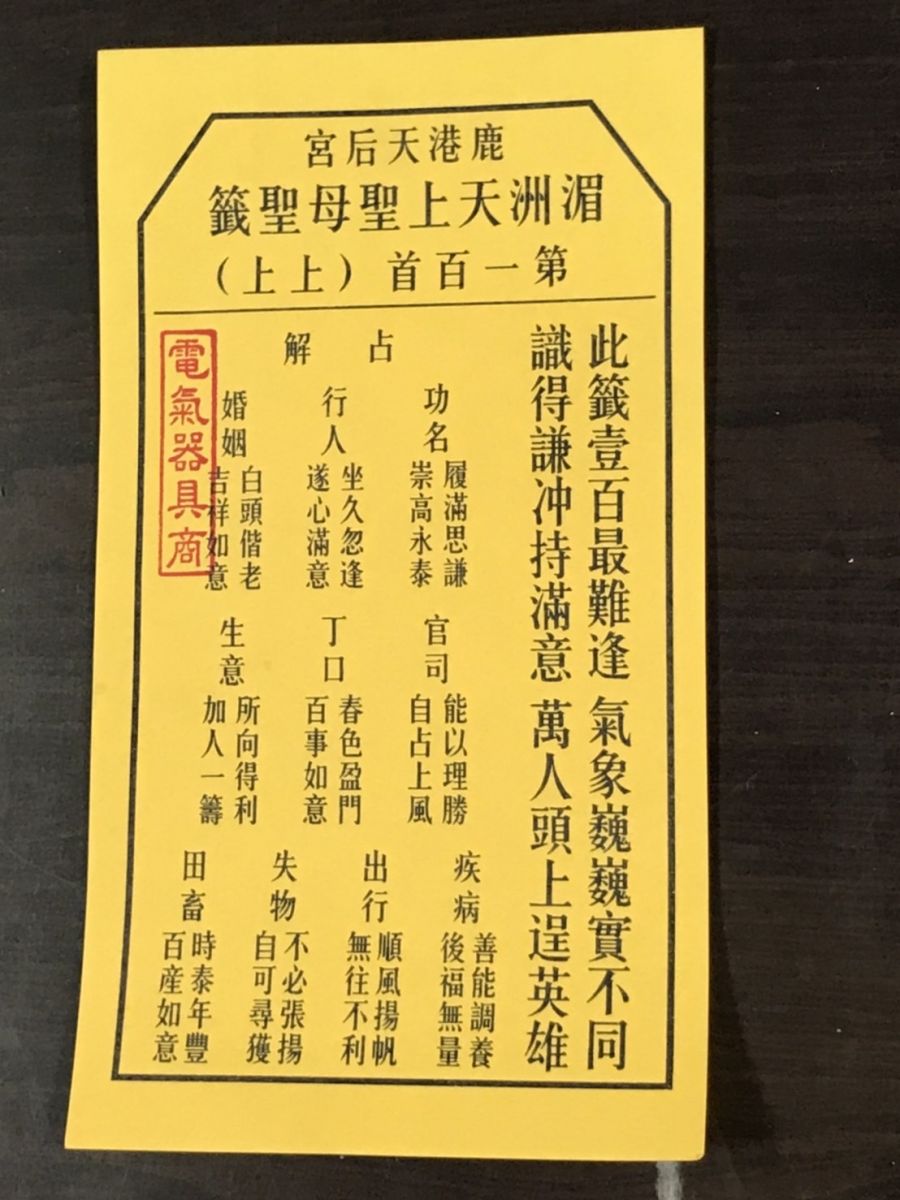 鹿港天后宮
湄洲天上聖母聖籤
第一百首(上上)
此籤壹百最難逢 氣象巍巍實不同
識得謙冲持滿意 萬人頭上逞英雄
占解
功名
履滿思謙
崇高永泰
官司
能以理勝
自占上風
疾病
善能調養
後福無量
行人
坐久忽逢
遂心滿意
丁口
春色盈門
百事如意
出行
順風揚帆
無往不利
婚姻
白頭偕老
吉祥如意
生意
所向得利
加人一籌
失物
不必張揚
自可尋獲
田畜
時泰年豐
百産如意
電氣器具商